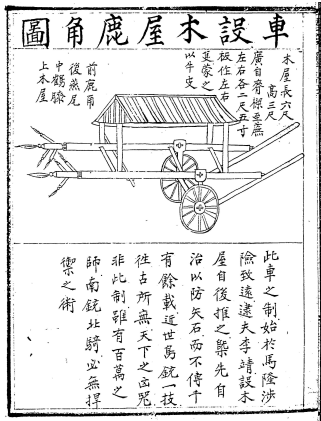 車設木屋鹿角圖
木屋長六尺
高三尺
廣自脊檁至簷
左右各二尺五寸
板作左右
蒙之
以牛皮
前鹿角
後燕尾
中鶴膝
上木屋
此車之制始於馬隆涉
險致遠逮夫李靖設木
屋自後推之槩先自
治以防矢石而不傳千
有餘載近世鳥銃一技
往古所無天下之凶
非此制雖有百萬之
師南銃北騎必無捍
禦之術